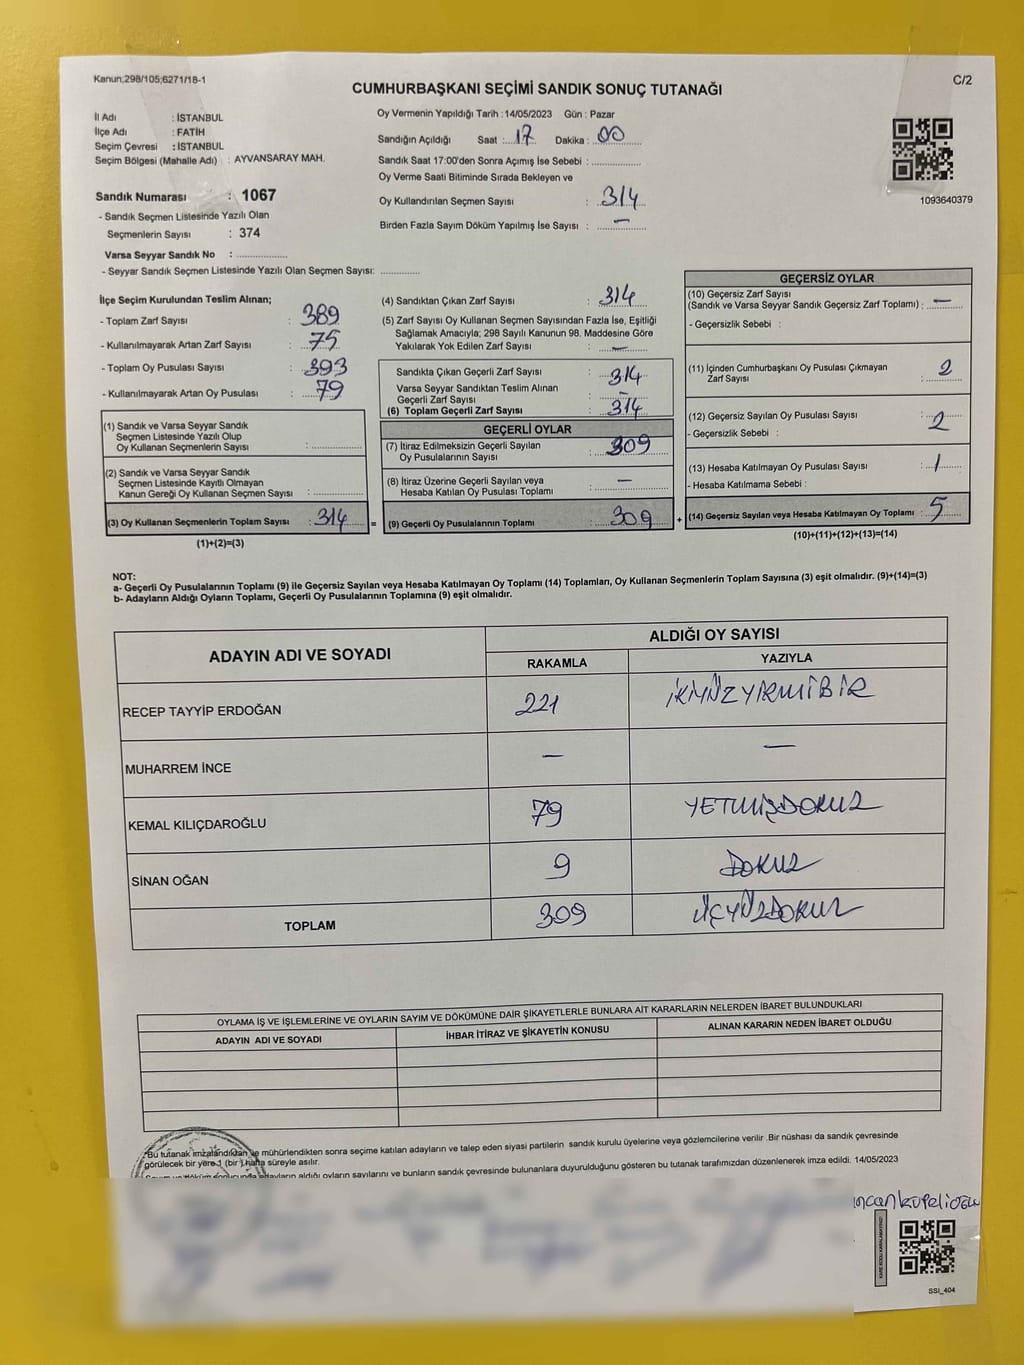 Kanun;298/105;6271/18-1
CUMHURBAŞKANI SEÇİMİ SANDIK SONUÇ TUTANAĞI
C/2
İl Adı : İSTANBUL
İlçe Adı : FATİH
Seçim Çevresi : İSTANBUL
Seçim Bölgesi (Mahalle Adı) : AYVANSARAY MAH.
Sandık Numarası : 1067
- Sandık Seçmen Listesinde Yazılı Olan
Seçmenlerin Sayısı : 374
Varsa Seyyar Sandık No : ................
- Seyyar Sandık Seçmen Listesinde Yazılı Olan Seçmen Sayısı: ............
Oy Vermenin Yapıldığı Tarih :14/05/2023 Gün : Pazar
Sandığın Açıldığı Saat : 17 Dakika : 00
Sandık Saat 17:00'den Sonra Açımış İse Sebebi : ...............
Oy Verme Saati Bitiminde Sırada Bekleyen ve
Oy Kullandırılan Seçmen Sayısı : 314
Birden Fazla Sayım Döküm Yapılmış İse Sayısı : —
1093640379
İlçe Seçim Kurulundan Teslim Alınan;
- Toplam Zarf Sayısı : 389
- Kullanılmayarak Artan Zarf Sayısı : 75
- Toplam Oy Pusulası Sayısı : 393
- Kullanılmayarak Artan Oy Pusulası : 79
(1) Sandık ve Varsa Seyyar Sandık
Seçmen Listesinde Yazılı Olup
Oy Kullanan Seçmenlerin Sayısı : ..............
(2) Sandık ve Varsa Seyyar Sandık
Seçmen Listesinde Kayıtlı Olmayan
Kanun Gereği Oy Kullanan Seçmen Sayısı : ..............
(3) Oy Kullanan Seçmenlerin Toplam Sayısı : 314 =
(1)+(2)=(3)
(4) Sandıktan Çıkan Zarf Sayısı : 314
(5) Zarf Sayısı Oy Kullanan Seçmen Sayısından Fazla İse, Eşitliği
Sağlamak Amacıyla; 298 Sayılı Kanunun 98. Maddesine Göre
Yakılarak Yok Edilen Zarf Sayısı : —
Sandıkta Çıkan Geçerli Zarf Sayısı : 314
Varsa Seyyar Sandıktan Teslim Alınan
Geçerli Zarf Sayısı : —
(6) Toplam Geçerli Zarf Sayısı : 314
GEÇERLİ OYLAR
(7) İtiraz Edilmeksizin Geçerli Sayılan
Oy Pusulalarının Sayısı : 309
(8) İtiraz Üzerine Geçerli Sayılan veya
Hesaba Katılan Oy Pusulası Toplamı : —
(9) Geçerli Oy Pusulalarının Toplamı : 309 +
GEÇERSİZ OYLAR
(10) Geçersiz Zarf Sayısı
(Sandık ve Varsa Seyyar Sandık Geçersiz Zarf Toplamı) : —
- Geçersizlik Sebebi :
(11) İçinden Cumhurbaşkanı Oy Pusulası Çıkmayan
Zarf Sayısı : 2
(12) Geçersiz Sayılan Oy Pusulası Sayısı : 2
- Geçersizlik Sebebi :
(13) Hesaba Katılmayan Oy Pusulası Sayısı : 1
- Hesaba Katılmama Sebebi :
(14) Geçersiz Sayılan veya Hesaba Katılmayan Oy Toplamı : 5
(10)+(11)+(12)+(13)=(14)
NOT:
a- Geçerli Oy Pusulalarının Toplamı (9) ile Geçersiz Sayılan veya Hesaba Katılmayan Oy Toplamı (14) Toplamları, Oy Kullanan Seçmenlerin Toplam Sayısına (3) eşit olmalıdır. (9)+(14)=(3)
b- Adayların Aldığı Oyların Toplamı, Geçerli Oy Pusulalarının Toplamına (9) eşit olmalıdır.
ADAYIN ADI VE SOYADI
ALDIĞI OY SAYISI
RAKAMLA YAZIYLA
RECEP TAYYİP ERDOĞAN 221 İKİYÜZYİRMİBİR
MUHARREM İNCE — —
KEMAL KILIÇDAROĞLU 79 YETMİŞDOKUZ
SİNAN OĞAN 9 DOKUZ
TOPLAM 309 ÜÇYÜZDOKUZ
OYLAMA İŞ VE İŞLEMLERİNE VE OYLARIN SAYIM VE DÖKÜMÜNE DAİR ŞİKAYETLERLE BUNLARA AİT KARARLARIN NELERDEN İBARET BULUNDUKLARI
ADAYIN ADI VE SOYADI İHBAR İTİRAZ VE ŞİKAYETİN KONUSU ALINAN KARARIN NEDEN İBARET OLDUĞU
*Bu tutanak imzalandıktan ve mühürlendikten sonra seçime katılan adayların ve talep eden siyasi partilerin sandık kurulu üyelerine veya gözlemcilerine verilir .Bir nüshası da sandık çevresinde
görülecek bir yere 1 (bir ) hafta süreyle asılır.
adayların aldığı oyların sayılarını ve bunların sandık çevresinde bulunanlara duyurulduğunu gösteren bu tutanak tarafımızdan düzenlenerek imza edildi. 14/05/2023
SSI_404